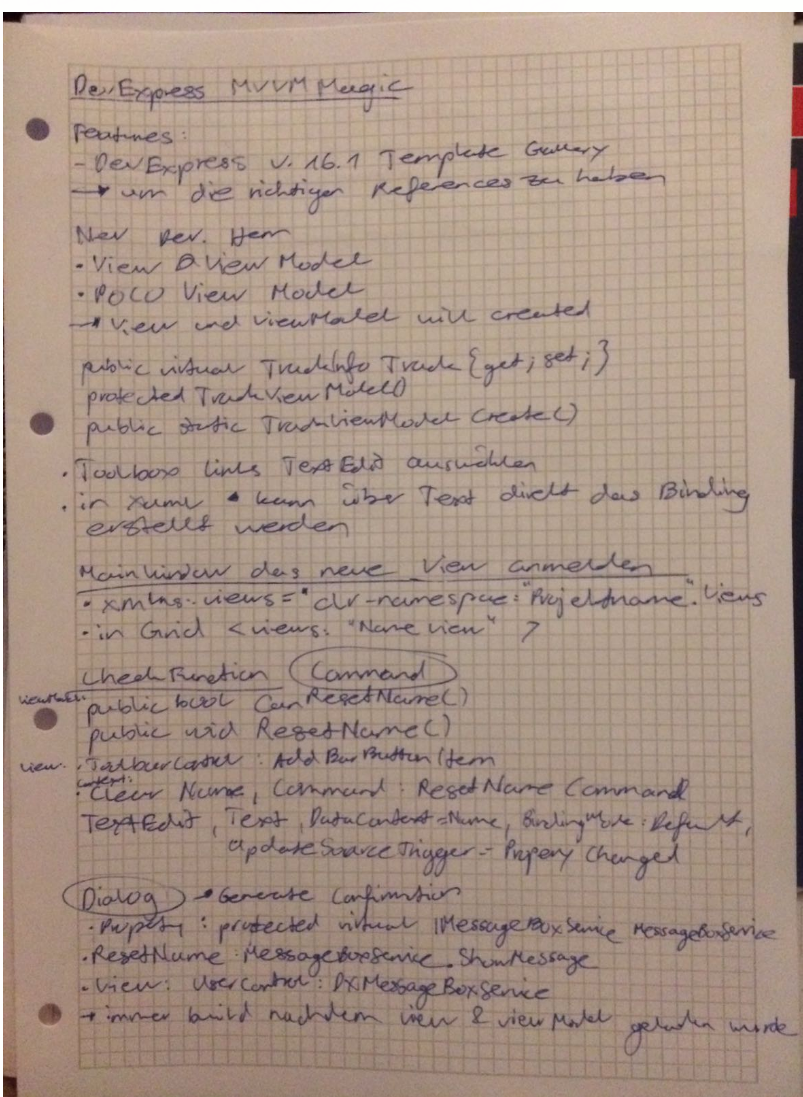 DevExpress MVVM Magic
Features:
- DevExpress v. 16.1 Template Gallery
→ um die richtigen References zu haben
New Dev. Item
• View & View Model
• POCO View Model
→ View und ViewModel will created
public virtual TradeInfo Trade {get; set;}
protected TradeViewModel()
public static TradeViewModel Create()
• Toolbox links TextEdit auswählen
• in xaml • kann über Text direkt das Binding
erstellt werden
MainWindow das neue View anmelden
• xmlns:views="clr-namespace:"Projektname".Views
• in Grid <views: "Name view" >
Check Function Command
ViewModel: public bool CanResetName()
public void ResetName()
View: • ToolbarControl: Add BarButtonItem
Content:
• Clear Name, Command: ResetName Command
TextEdit, Text, DataContext=Name, BindingMode: Default,
UpdateSourceTrigger = Propery Changed
Dialog → Generate Confirmation
• Property: protected virtual IMessageBoxService MessageBoxService
• ResetName: MessageBoxService.ShowMessage
• View: UserControl: DXMessageBoxService
→ immer build nachdem view & viewModel geladen wurde